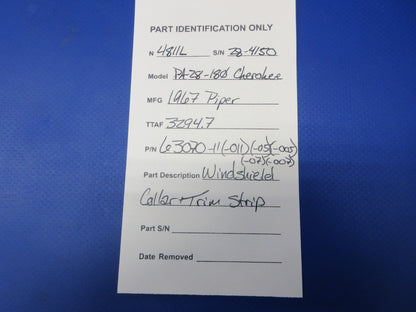 PART IDENTIFICATION ONLY
N 4811L S/N 28-4150
Model PA-28-180 Cherokee
MFG 1967 Piper
TTAF 3294.7
P/N 63070-11(-011)(-05)(-005)
(-07)(-007)
Part Description Windshield
Collar + Trim Strip
Part S/N
Date Removed